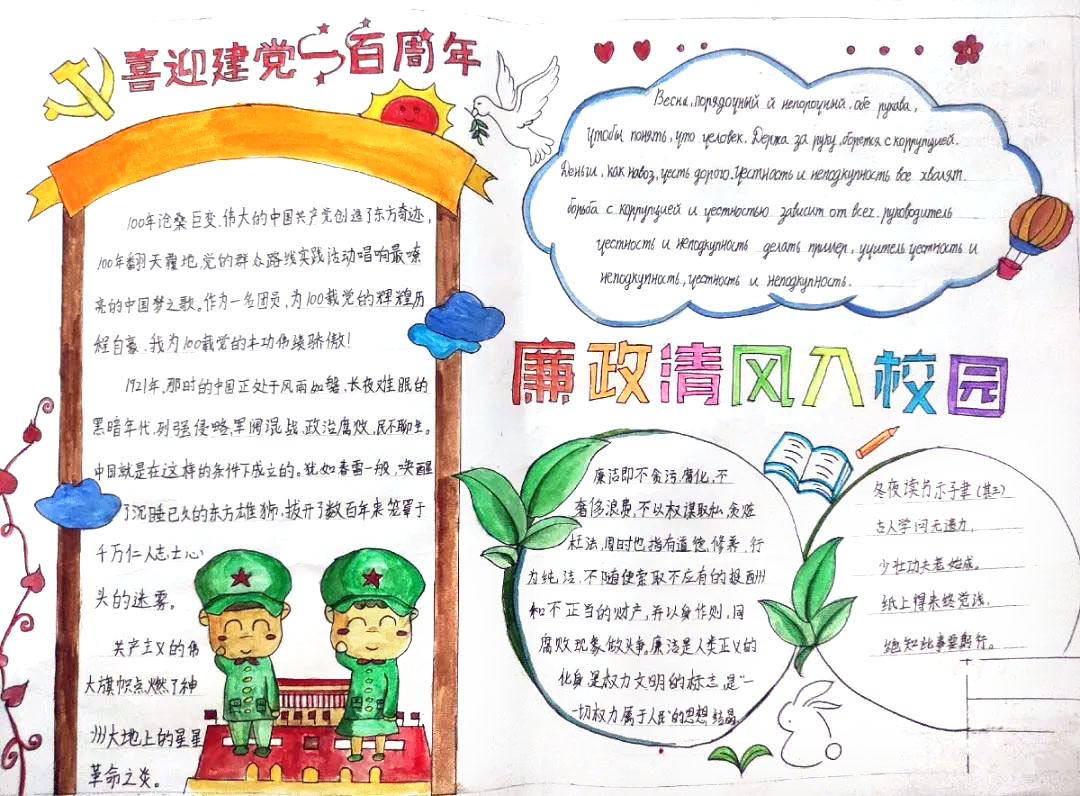 喜迎建党一百周年
100年沧桑巨变.伟大的中国共产党创造了东方奇迹,
100年翻天覆地,党的群众路线实践活动唱响最嘹
亮的中国梦之歌。作为一名团员,为100载党的辉煌历
程自豪.我为100载党的丰功伟绩骄傲!
1921年,那时的中国正处于风雨如磐、长夜难眠的
黑暗年代,列强侵略,军阀混战、政治腐败,民不聊生。
中国就是在这样的条件下成立的。犹如春雷一般,唤醒
了沉睡已久的东方雄狮,拨开了数百年来笼罩于
千万仁人志士心
头的迷雾。
共产主义的伟
大旗帜点燃了神
州大地上的星星
革命之炎。
Весна, порядочный и непорочный, обе рукава,
чтобы понять, что человек. Держа за руку, борется с коррупцией.
Деньги, как навоз, честь дорого. Честность и неподкупность все хвалят.
борьба с коррупцией и честностью зависит от всех. руководитель
честность и неподкупность делать пример, учитель честность и
неподкупность, честность и неподкупность.
廉政清风入校园
廉洁即不贪污,腐化,不
奢侈浪费,不以权谋取私,贪赃
枉法,同时也指有道德,修养,行
为纯,洁,不随便索取不应有的报酬
和不正当的财产,并以身作则,同
腐败现象做斗争。廉洁是人类正义的
化身,是权力文明的标志,是“一
一切权力属于人民”的思想结晶
冬夜读书示子聿(其三)
古人学问无遗力,
少壮功夫老始成。
纸上得来终觉浅,
绝知此事要躬行。